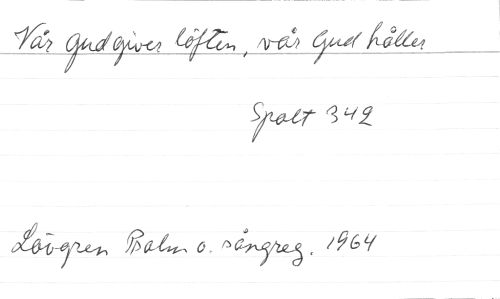 Vår Gud giver löften, vår Gud håller
Spalt 342
Lövgren Psalm o. sångreg. 1964